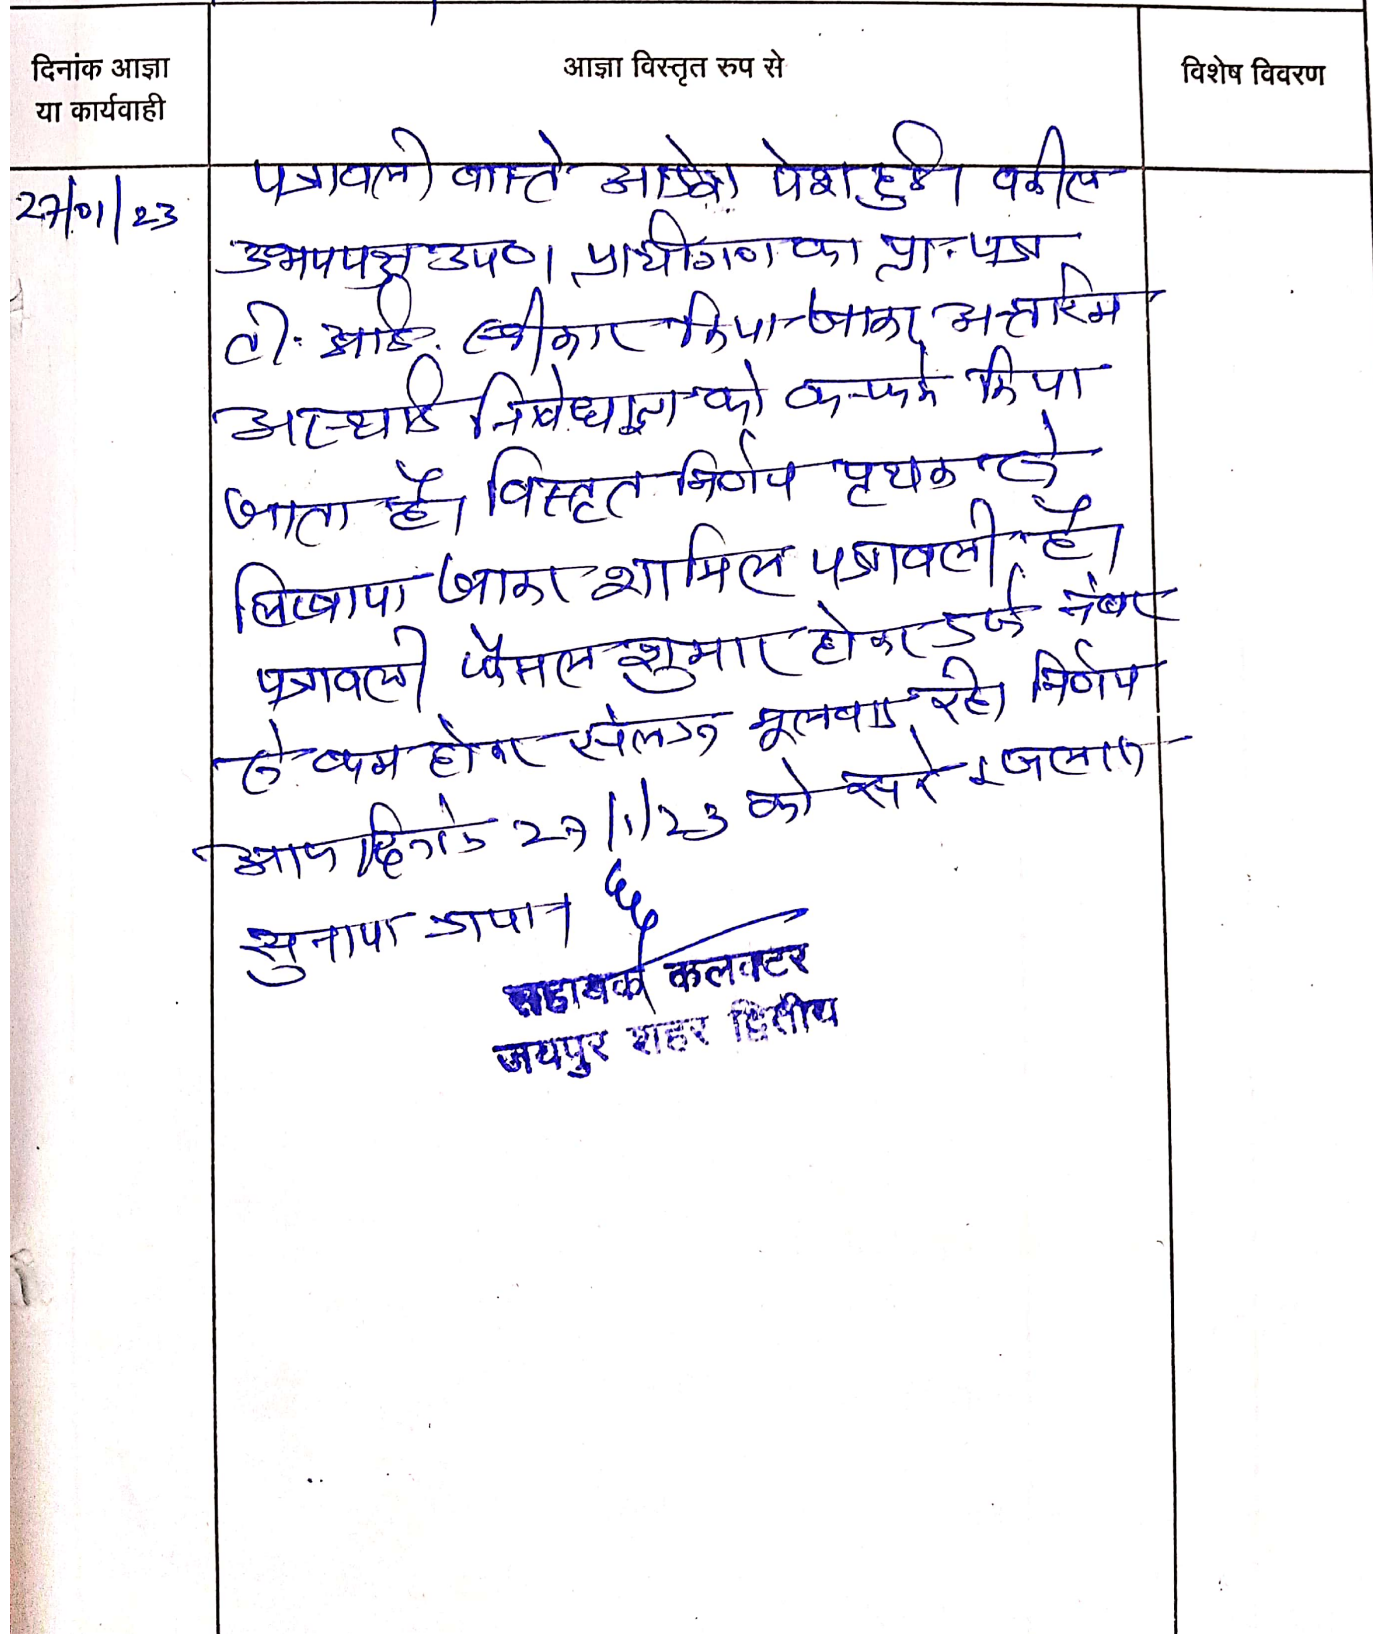 दिनांक आज्ञा
या कार्यवाही
आज्ञा विस्तृत रुप से
विशेष विवरण
27/01/23
पत्रावली वास्ते आदेश पेश हुई। वकील
उभयपक्ष उप०। प्रार्थीगण का प्रा. पत्र
टी. आई. स्वीकार किया जाकर अन्तरिम
अस्थाई निषेधाज्ञा को कन्फर्म किया
जाता है। विस्तृत निर्णय पृथक से
लिखाया जाकर शामिल पत्रावली है।
पत्रावली फैसल शुमार होकर दर्ज नंबर
से कम होकर संलग्न मूलवाद रहे। निर्णय
आज दिनांक 27/1/23 को सरे इजलास
सुनाया गया।
सहायक कलक्टर
जयपुर शहर द्वितीय